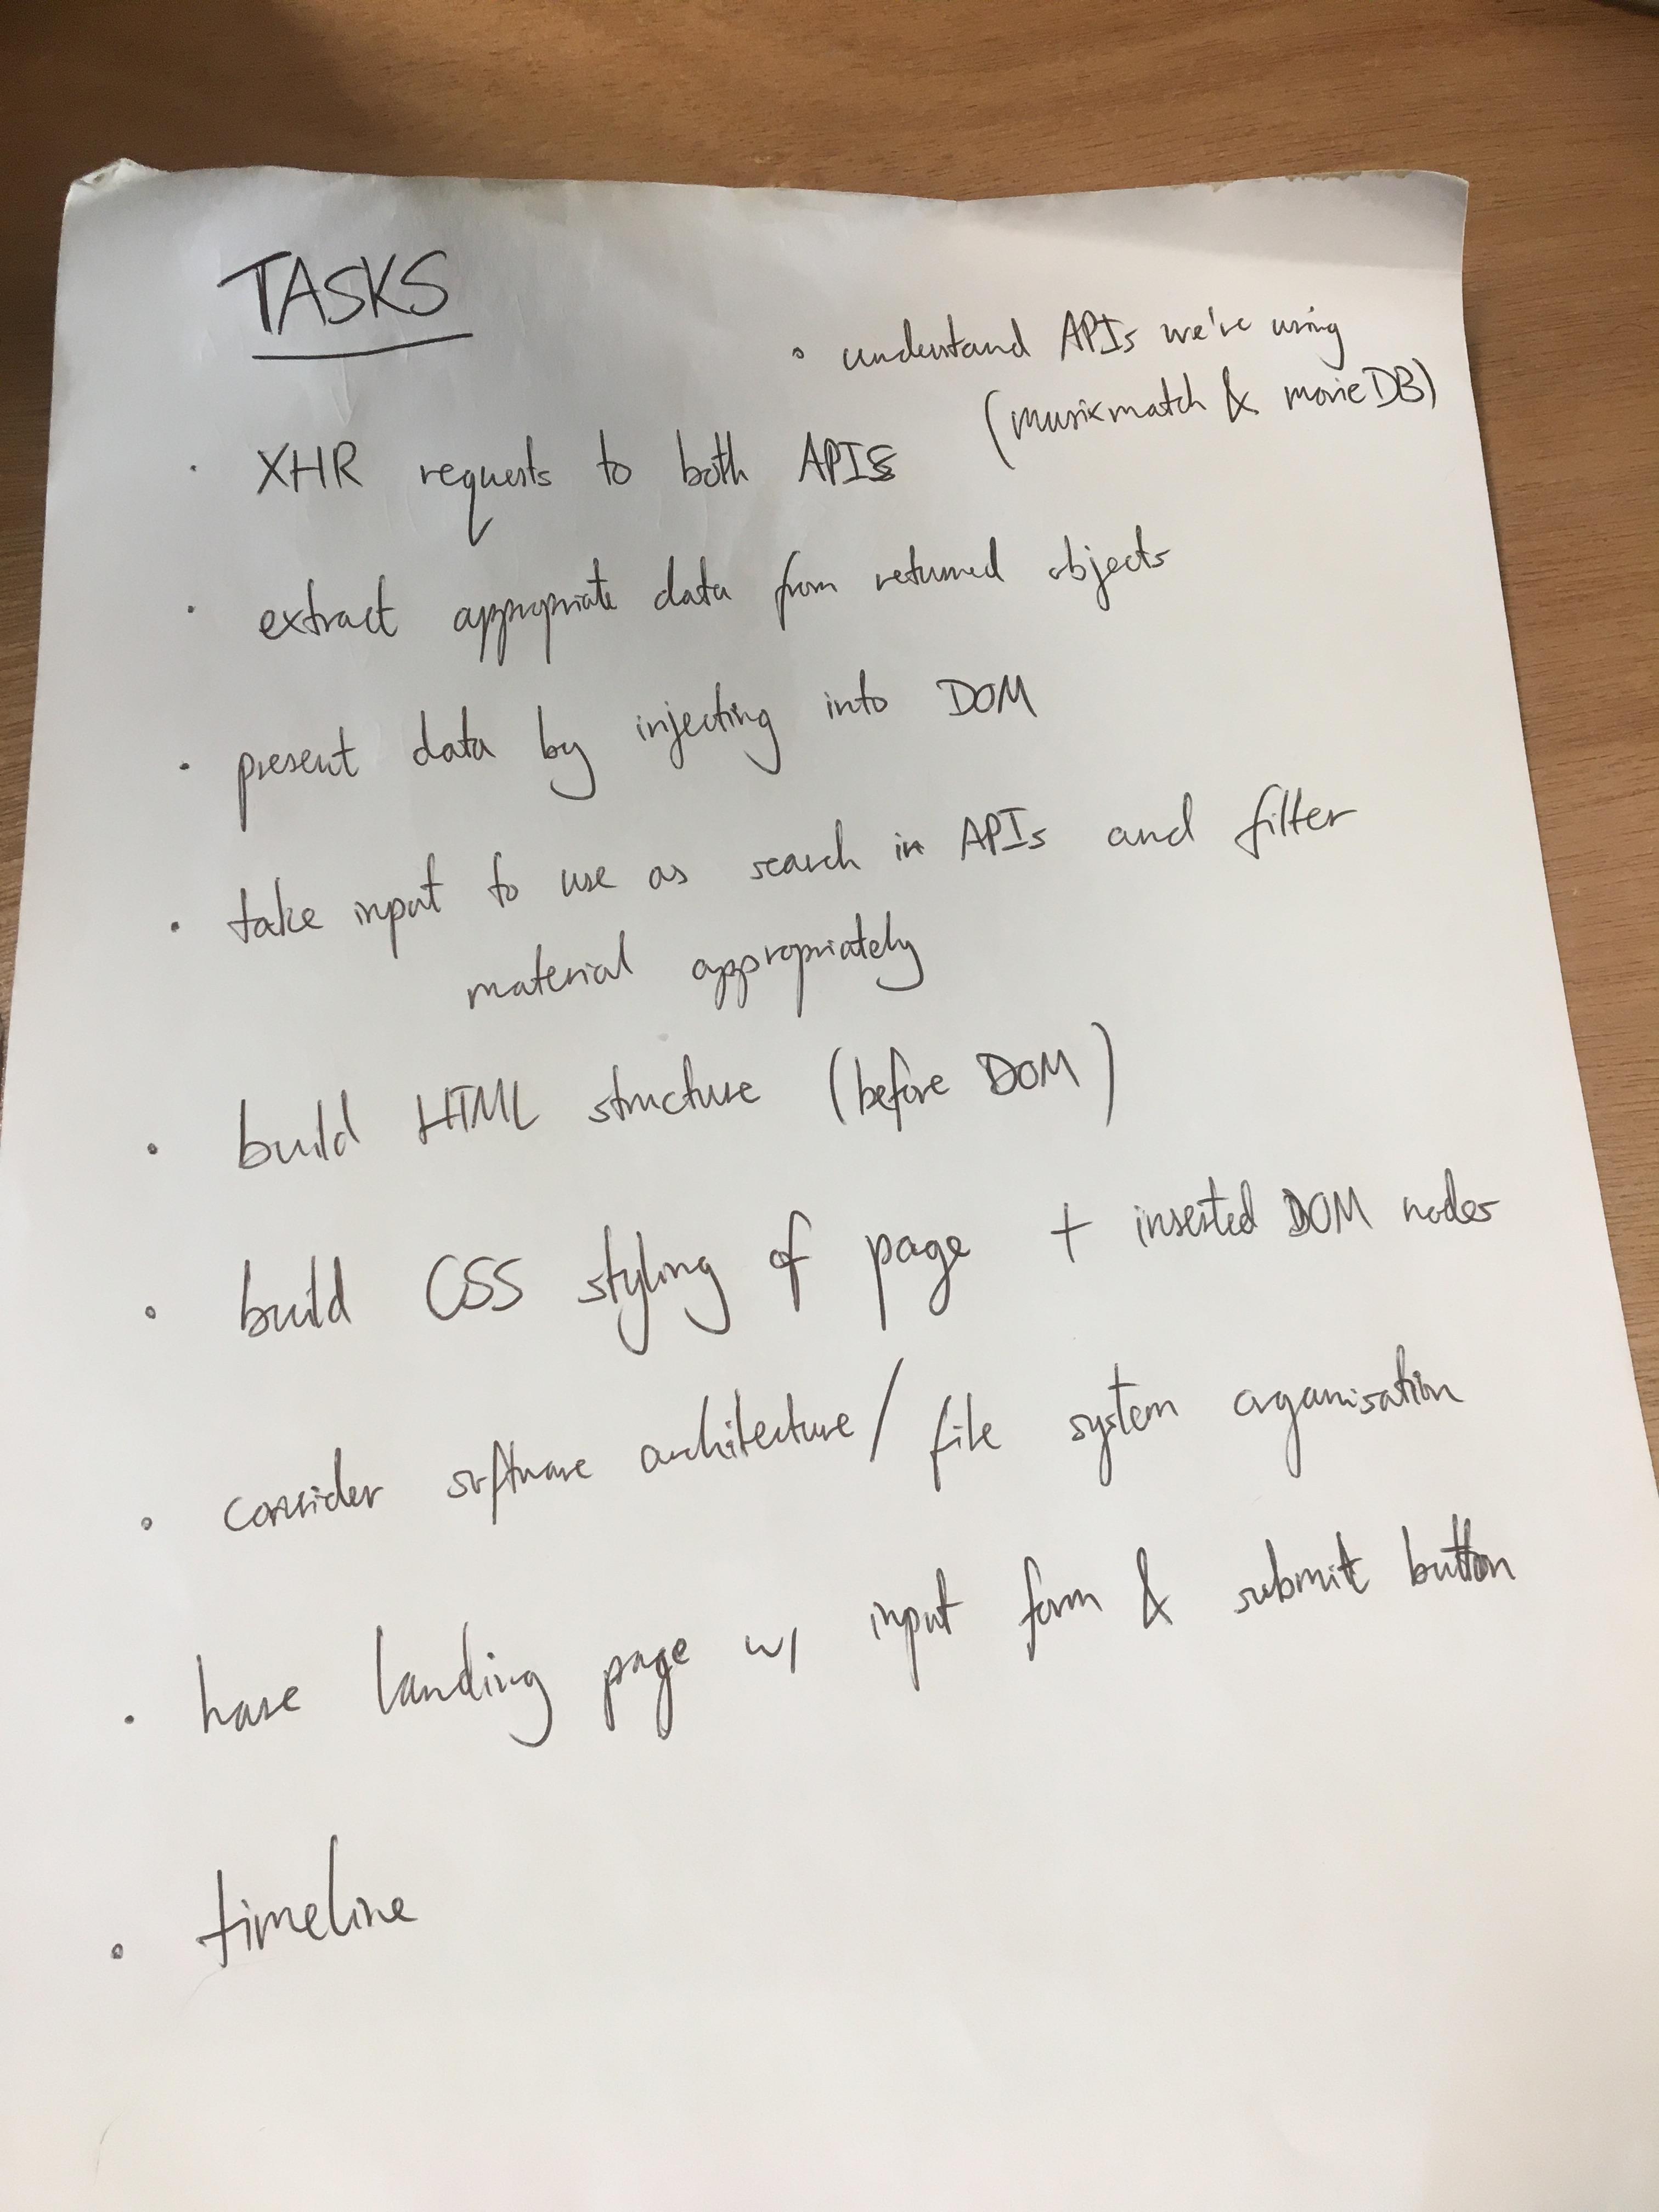 TASKS
• understand APIs we're using
(musixmatch & movieDB)
• XHR requests to both APIs
• extract appropriate data from returned objects
• present data by injecting into DOM
• take input to use as search in APIs and filter
material appropriately
• build HTML structure (before DOM)
• build CSS styling of page + inserted DOM nodes
• consider software architecture / file system organisation
• have landing page w/ input form & submit button
• timeline